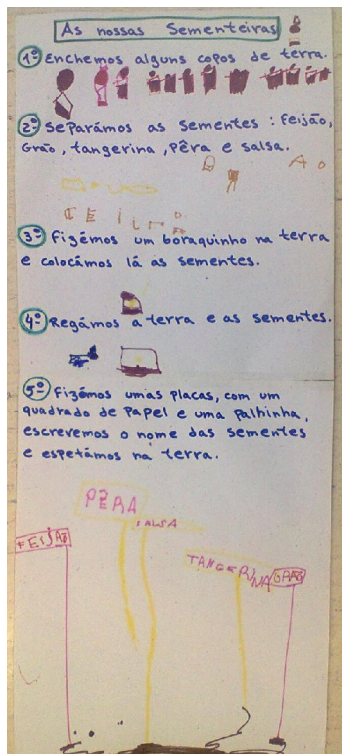 As nossas Sementeiras
1º Enchemos alguns copos de terra.
2º Separámos as sementes: Feijão,
Grão, tangerina, pêra e salsa.
3º Fizémos um boraquinho na terra
e colocámos lá as sementes.
4º Regámos a terra e as sementes.
5º Fizémos umas placas, com um
quadrado de papel e uma palhinha,
escrevemos o nome das sementes
e espetámos na terra.
PÊRA
SALSA
FEIJÃO
TANGERINA
GRÃO